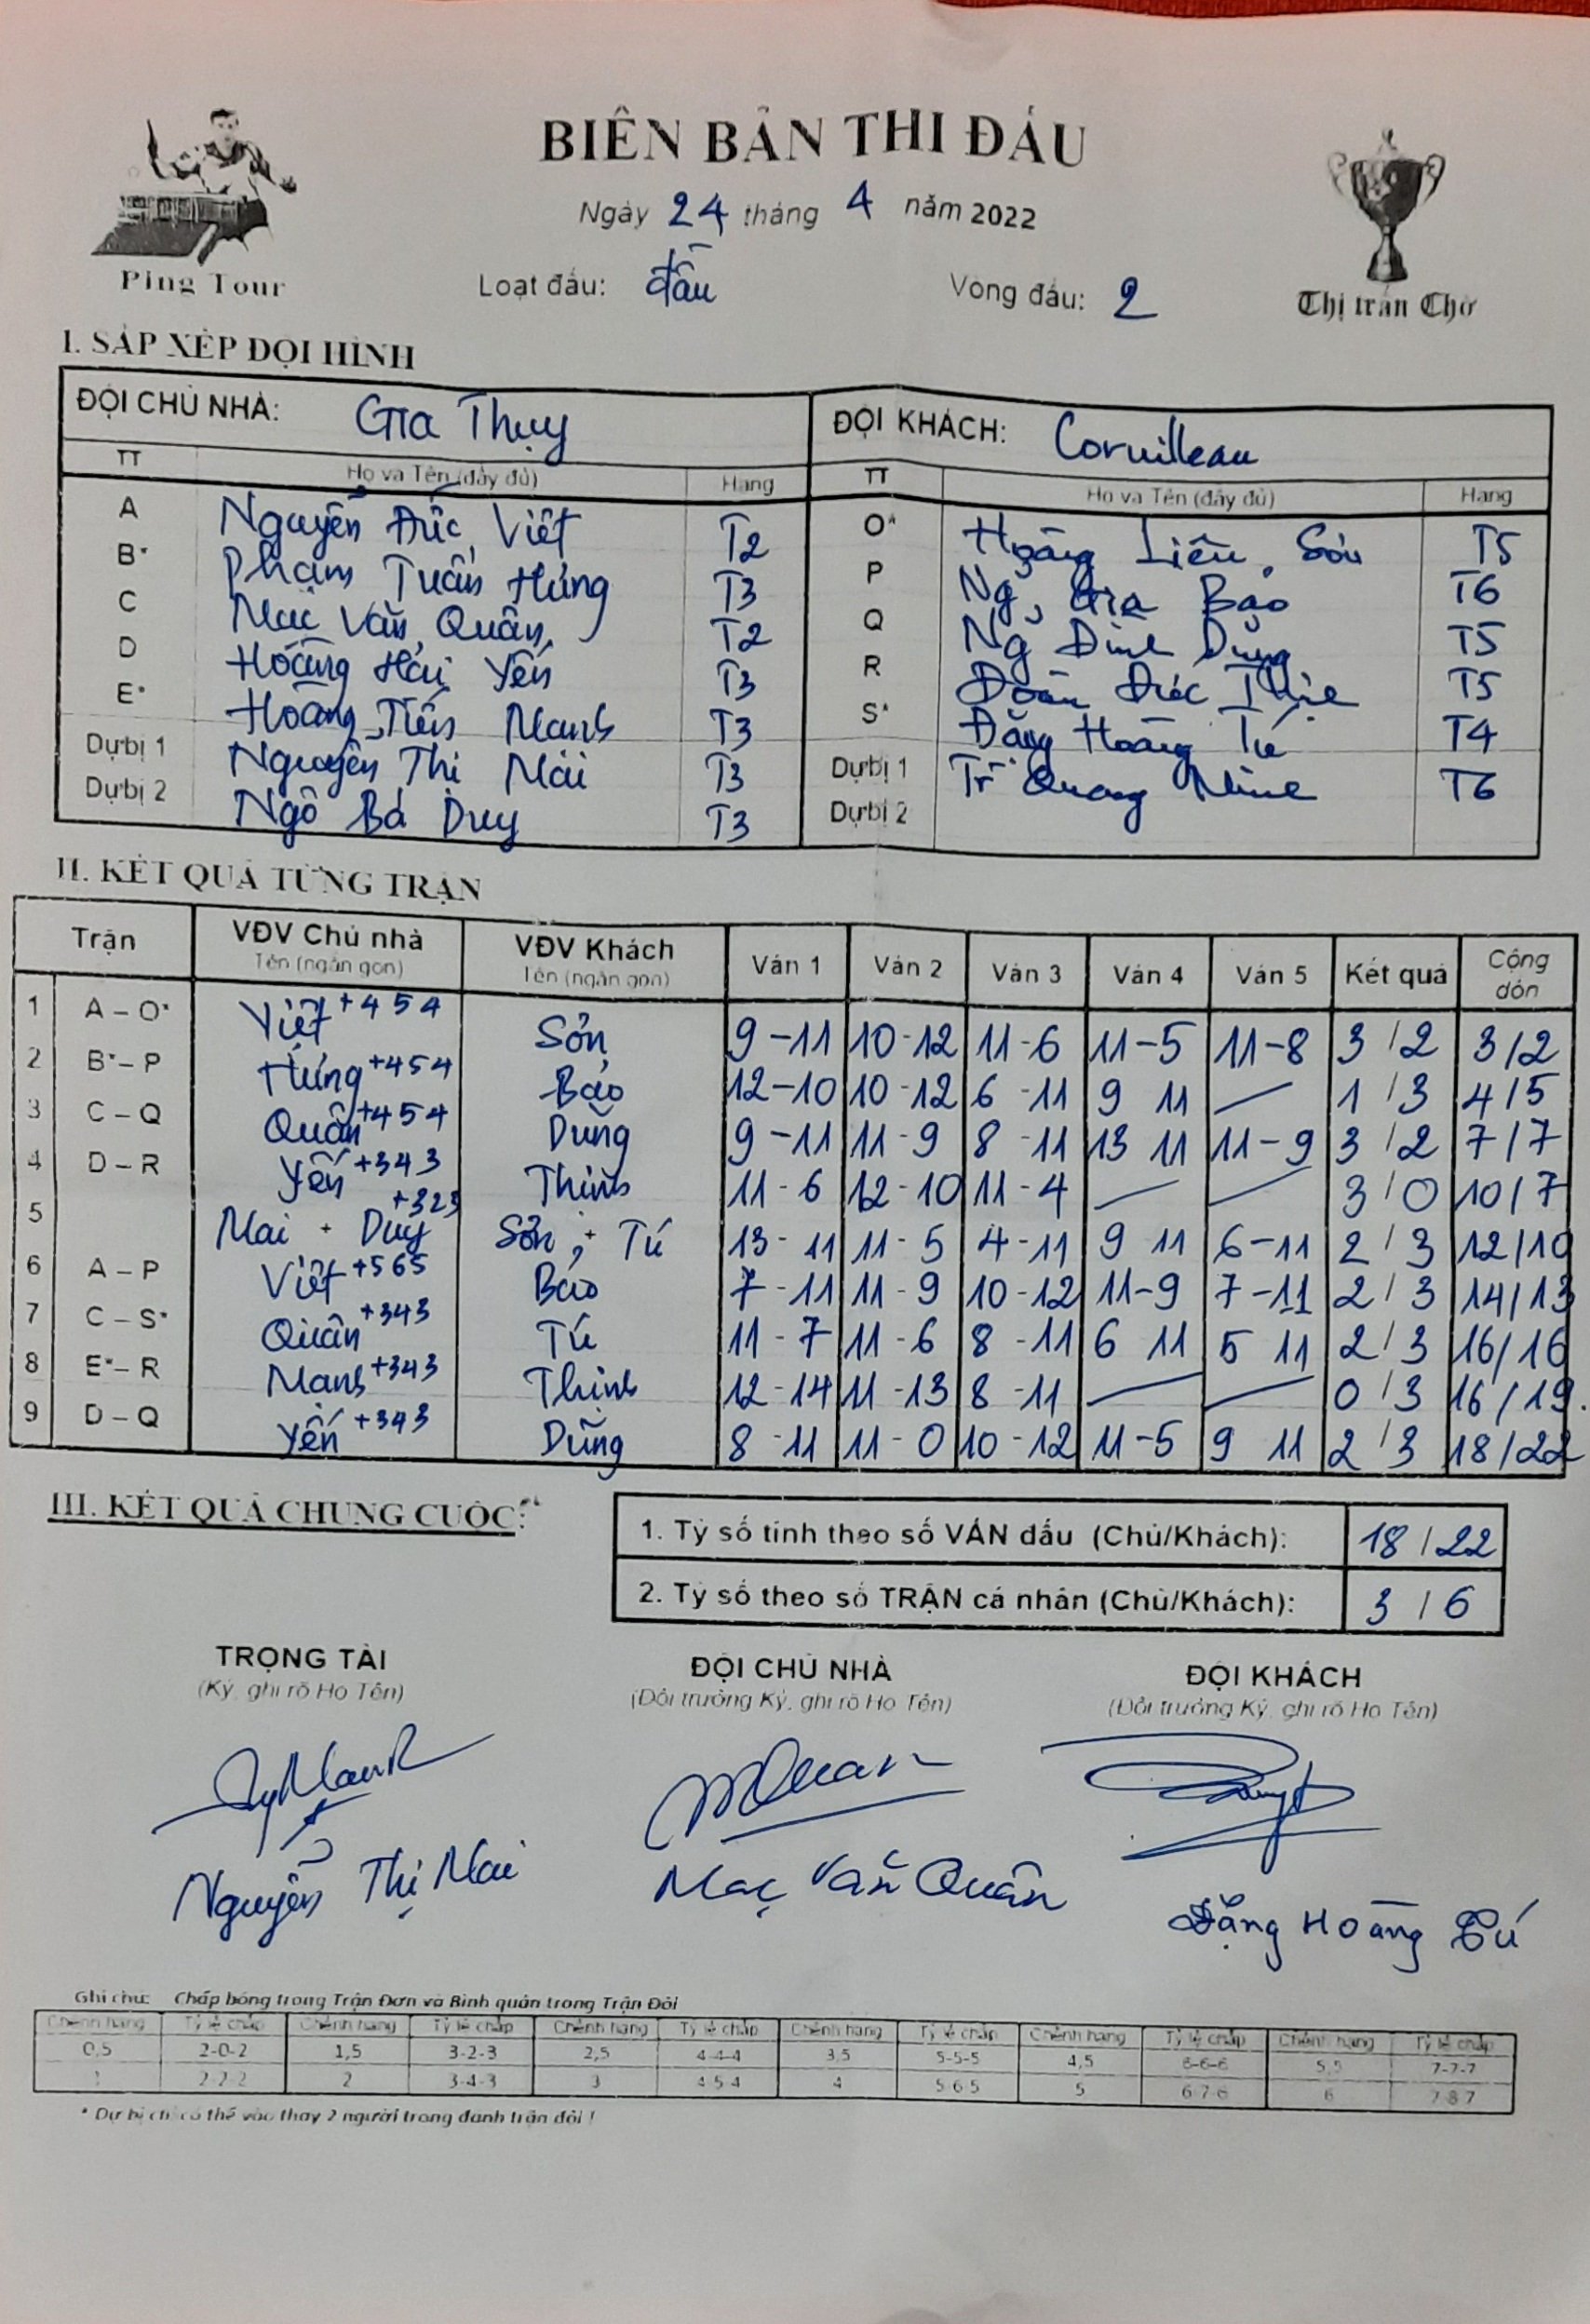 BIÊN BẢN THI ĐẤU
Ngày 24 tháng 4 năm 2022
Ping Tour
Loạt đấu: đầu Vòng đấu: 2
Thị trấn Chờ
I. SẮP XẾP ĐỘI HÌNH
ĐỘI CHỦ NHÀ: Gia Thụy ĐỘI KHÁCH: Cornilleau
TT Họ và Tên (đầy đủ) Hạng TT Họ và Tên (đầy đủ) Hạng
A Nguyễn Đức Việt T2 O* Hoàng Liên Sơn T5
B* Phạm Tuấn Hưng T3 P Ng, Gia Bảo T6
C Mạc Văn Quân T2 Q Ng Đình Dũng T5
D Hoàng Hải Yến T3 R Đoàn Đức Thịnh T5
E* Hoàng Tiến Mạnh T3 S* Đặng Hoàng Tú T4
Dự bị 1 Nguyễn Thị Mai T3 Dự bị 1 Tr Quang Minh T6
Dự bị 2 Ngô Bá Duy T3 Dự bị 2
II. KẾT QUẢ TỪNG TRẬN
Trận VĐV Chủ nhà VĐV Khách Ván 1 Ván 2 Ván 3 Ván 4 Ván 5 Kết quả Cộng dồn
Tên (ngắn gọn) Tên (ngắn gọn)
1 A – O* Việt +454 Sơn 9-11 10-12 11-6 11-5 11-8 3/2 3/2
2 B* – P Hưng +454 Bảo 12-10 10-12 6-11 9 11 — 1/3 4/5
3 C – Q Quân +454 Dũng 9-11 11-9 8-11 13 11 11-9 3/2 7/7
4 D – R Yến +343 Thịnh 11-6 12-10 11-4 — — 3/0 10/7
5 Mai + Duy +323 Sơn + Tú 13-11 11-5 4-11 9 11 6-11 2/3 12/10
6 A – P Việt +565 Bảo 7-11 11-9 10-12 11-9 7-11 2/3 14/13
7 C – S* Quân +343 Tú 11-7 11-6 8-11 6 11 5 11 2/3 16/16
8 E* – R Mạnh +343 Thịnh 12-14 11-13 8-11 — — 0/3 16/19.
9 D – Q Yến +343 Dũng 8-11 11-0 10-12 11-5 9 11 2/3 18/22
III. KẾT QUẢ CHUNG CUỘC:
1. Tỷ số tính theo số VÁN đấu (Chủ/Khách): 18/22
2. Tỷ số theo số TRẬN cá nhân (Chủ/Khách): 3/6
TRỌNG TÀI ĐỘI CHỦ NHÀ ĐỘI KHÁCH
(Ký, ghi rõ Họ Tên) (Đội trưởng Ký, ghi rõ Họ Tên) (Đội trưởng Ký, ghi rõ Họ Tên)
Nguyễn Thị Mai Mạc Văn Quân Đặng Hoàng Tú
Ghi chú: Chấp bóng trong Trận Đơn và Bình quân trong Trận Đôi
Chênh hạng Tỷ lệ chấp Chênh hạng Tỷ lệ chấp Chênh hạng Tỷ lệ chấp Chênh hạng Tỷ lệ chấp Chênh hạng Tỷ lệ chấp Chênh hạng Tỷ lệ chấp
0,5 2-0-2 1,5 3-2-3 2,5 4-4-4 3,5 5-5-5 4,5 6-6-6 5,5 7-7-7
1 2-2-2 2 3-4-3 3 4-5-4 4 5-6-5 5 6-7-6 6 7-8-7
* Dự bị chỉ có thể vào thay 2 người trong đánh trận đôi !